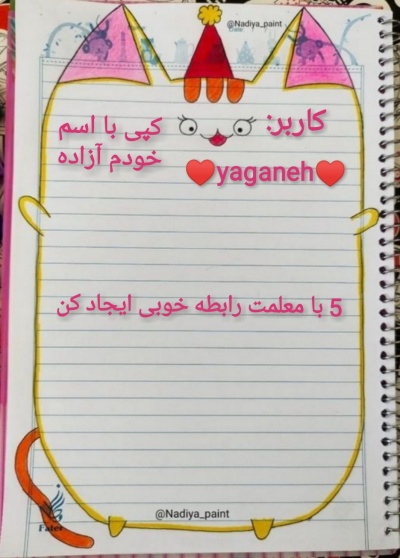 @Nadiya_paint
Date
کاربر:
♥️yaganeh♥️
کپی با اسم
خودم آزاده
5 با معلمت رابطه خوبی ایجاد کن
@Nadiya_paint
Fater